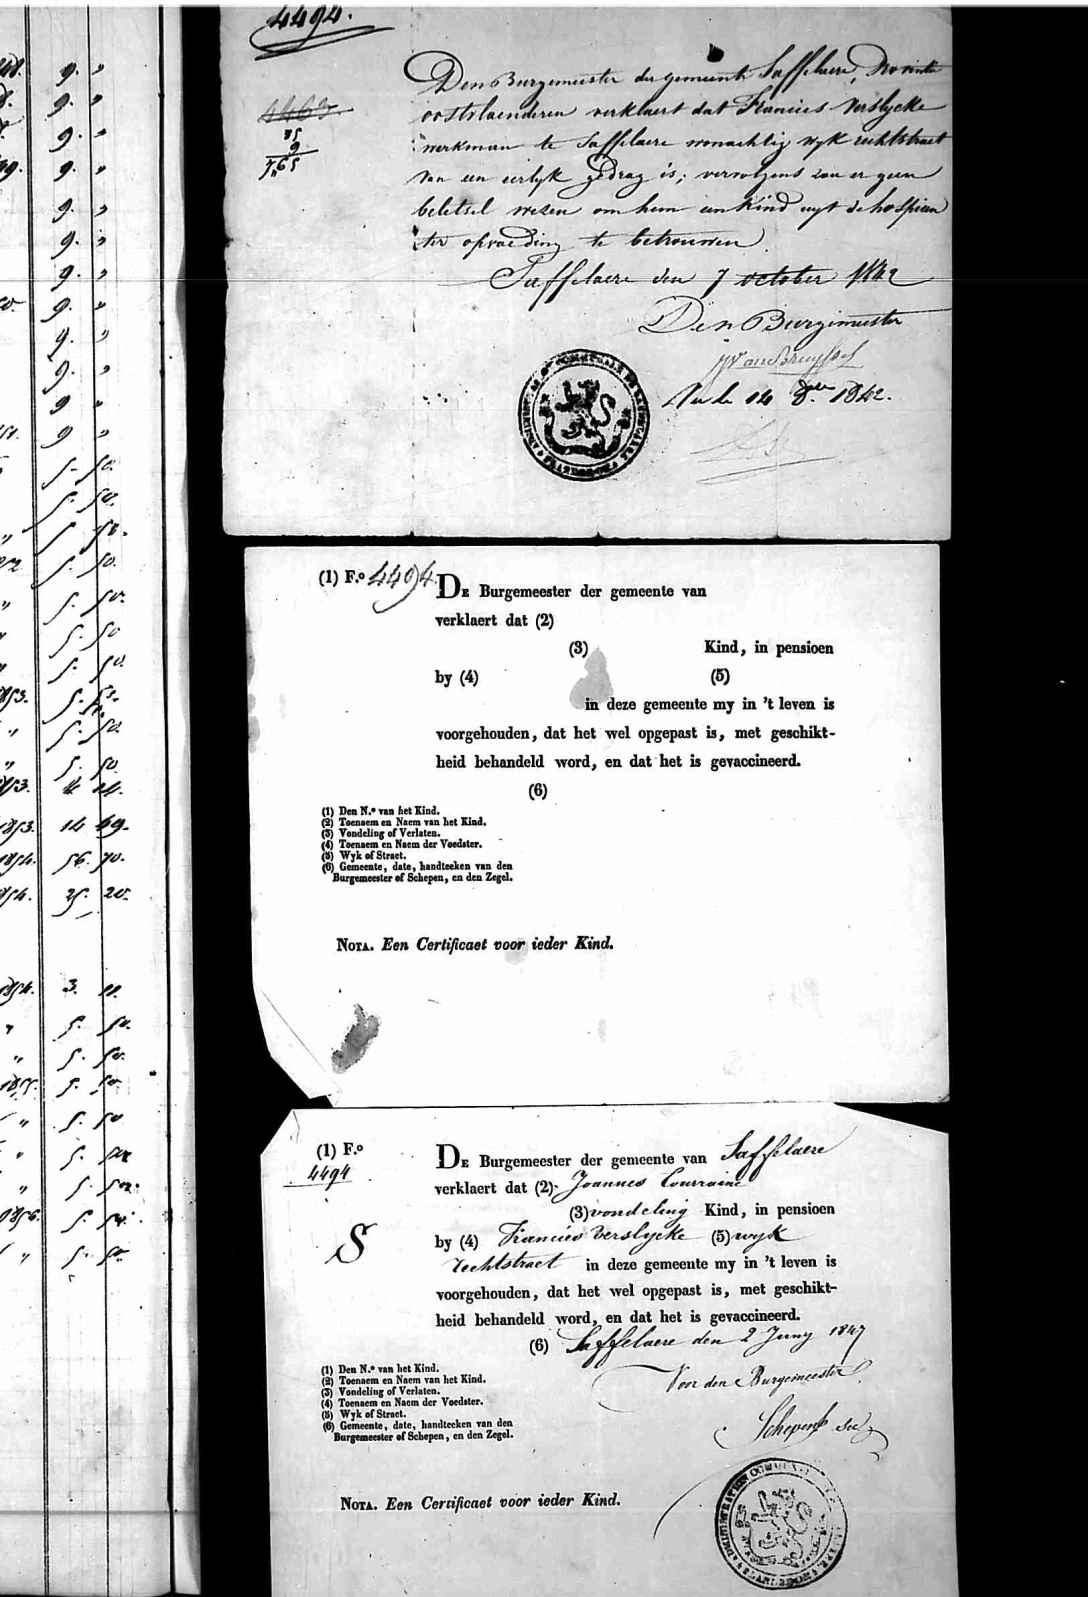 9. "
9. "
9. "
9. "
9. "
9. "
9. "
9. "
9. "
9. "
9. "
9 "
5. 50.
5. 50.
5. 50.
5. 50.
5. 50.
5. 50
5. 50.
1853.
5. 50.
5. 50.
1853.
1853. 14 49.
1854. 56. 70.
1854. 25. 20.
1854. 3. 11.
5. 50.
5. 50.
5. 50
5. 50
5. 50
5. 50.
1856. 5. 50.
5. 50.
4494.
4463.
85
9
765
Den Burgemeester der gemeente Saffelaere, Provintie
oostvlaenderen verklaert dat Francies Verslycke
werkman te Saffelaere woonachtig wyk rechtstraet
van een eerlyk gedrag is; vervolgens zou er geen
beletsel wezen om hem een Kind uyt de hospicen
ter opvoeding te betrouwen.
Saffelaere den 7 october 1842
Den Burgemeester
Vu le 14 8bre 1842.
(1) F.º 4494.
DE Burgemeester der gemeente van
verklaert dat (2)
(3) Kind, in pensioen
by (4) (5)
in deze gemeente my in 't leven is
voorgehouden, dat het wel opgepast is, met geschikt-
heid behandeld word, en dat het is gevaccineerd.
(6)
(1) Den N.º van het Kind.
(2) Toenaem en Naem van het Kind.
(3) Vondeling of Verlaten.
(4) Toenaem en Naem der Voedster.
(5) Wyk of Straet.
(6) Gemeente, date, handteeken van den
Burgemeester of Schepen, en den Zegel.
NOTA. Een Certificaet voor ieder Kind.
(1) F.º
4494
S
DE Burgemeester der gemeente van Saffelaere
verklaert dat (2) Joannes Courraine
(3) vondeling Kind, in pensioen
by (4) Francies Verslycke (5) wyk
rechtstraet in deze gemeente my in 't leven is
voorgehouden, dat het wel opgepast is, met geschikt-
heid behandeld word, en dat het is gevaccineerd.
(6) Saffelaere den 2 Juny 1847
Voor den Burgemeester
(1) Den N.º van het Kind.
(2) Toenaem en Naem van het Kind.
(3) Vondeling of Verlaten.
(4) Toenaem en Naem der Voedster.
(5) Wyk of Straet.
(6) Gemeente, date, handteeken van den
Burgemeester of Schepen, en den Zegel.
NOTA. Een Certificaet voor ieder Kind.